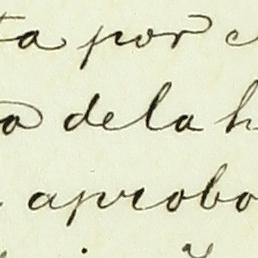 ta por
a dela h
aprobo